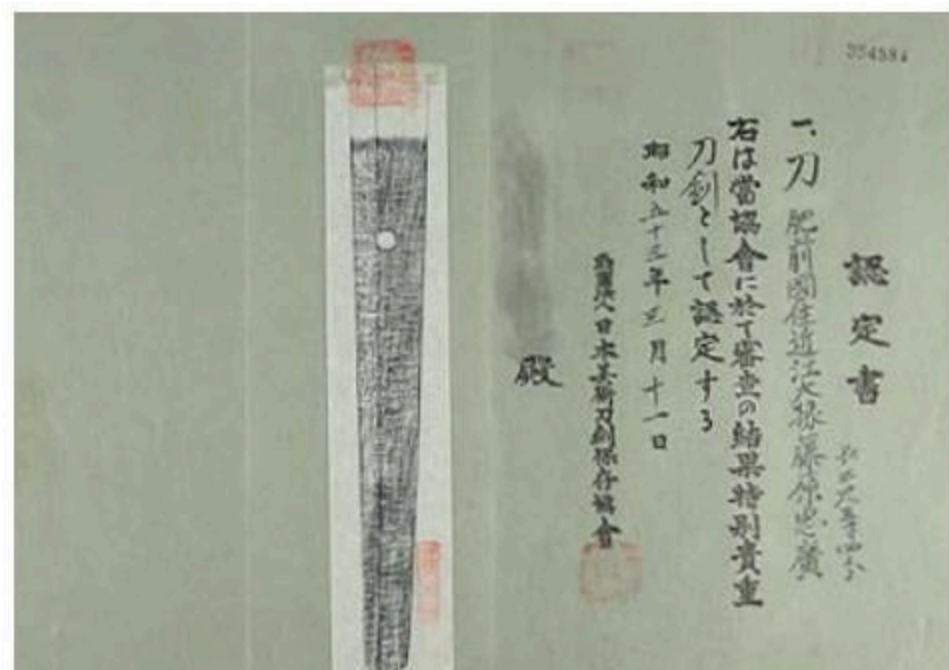 354584
認定書
一、刀 肥前國住近江大掾藤原忠廣
長サ貮尺壹寸四分
右は當協會に於て審査の結果特別貴重
刀剣として認定する
昭和五十三年三月十一日
財團法人日本美術刀剣保存協會
殿